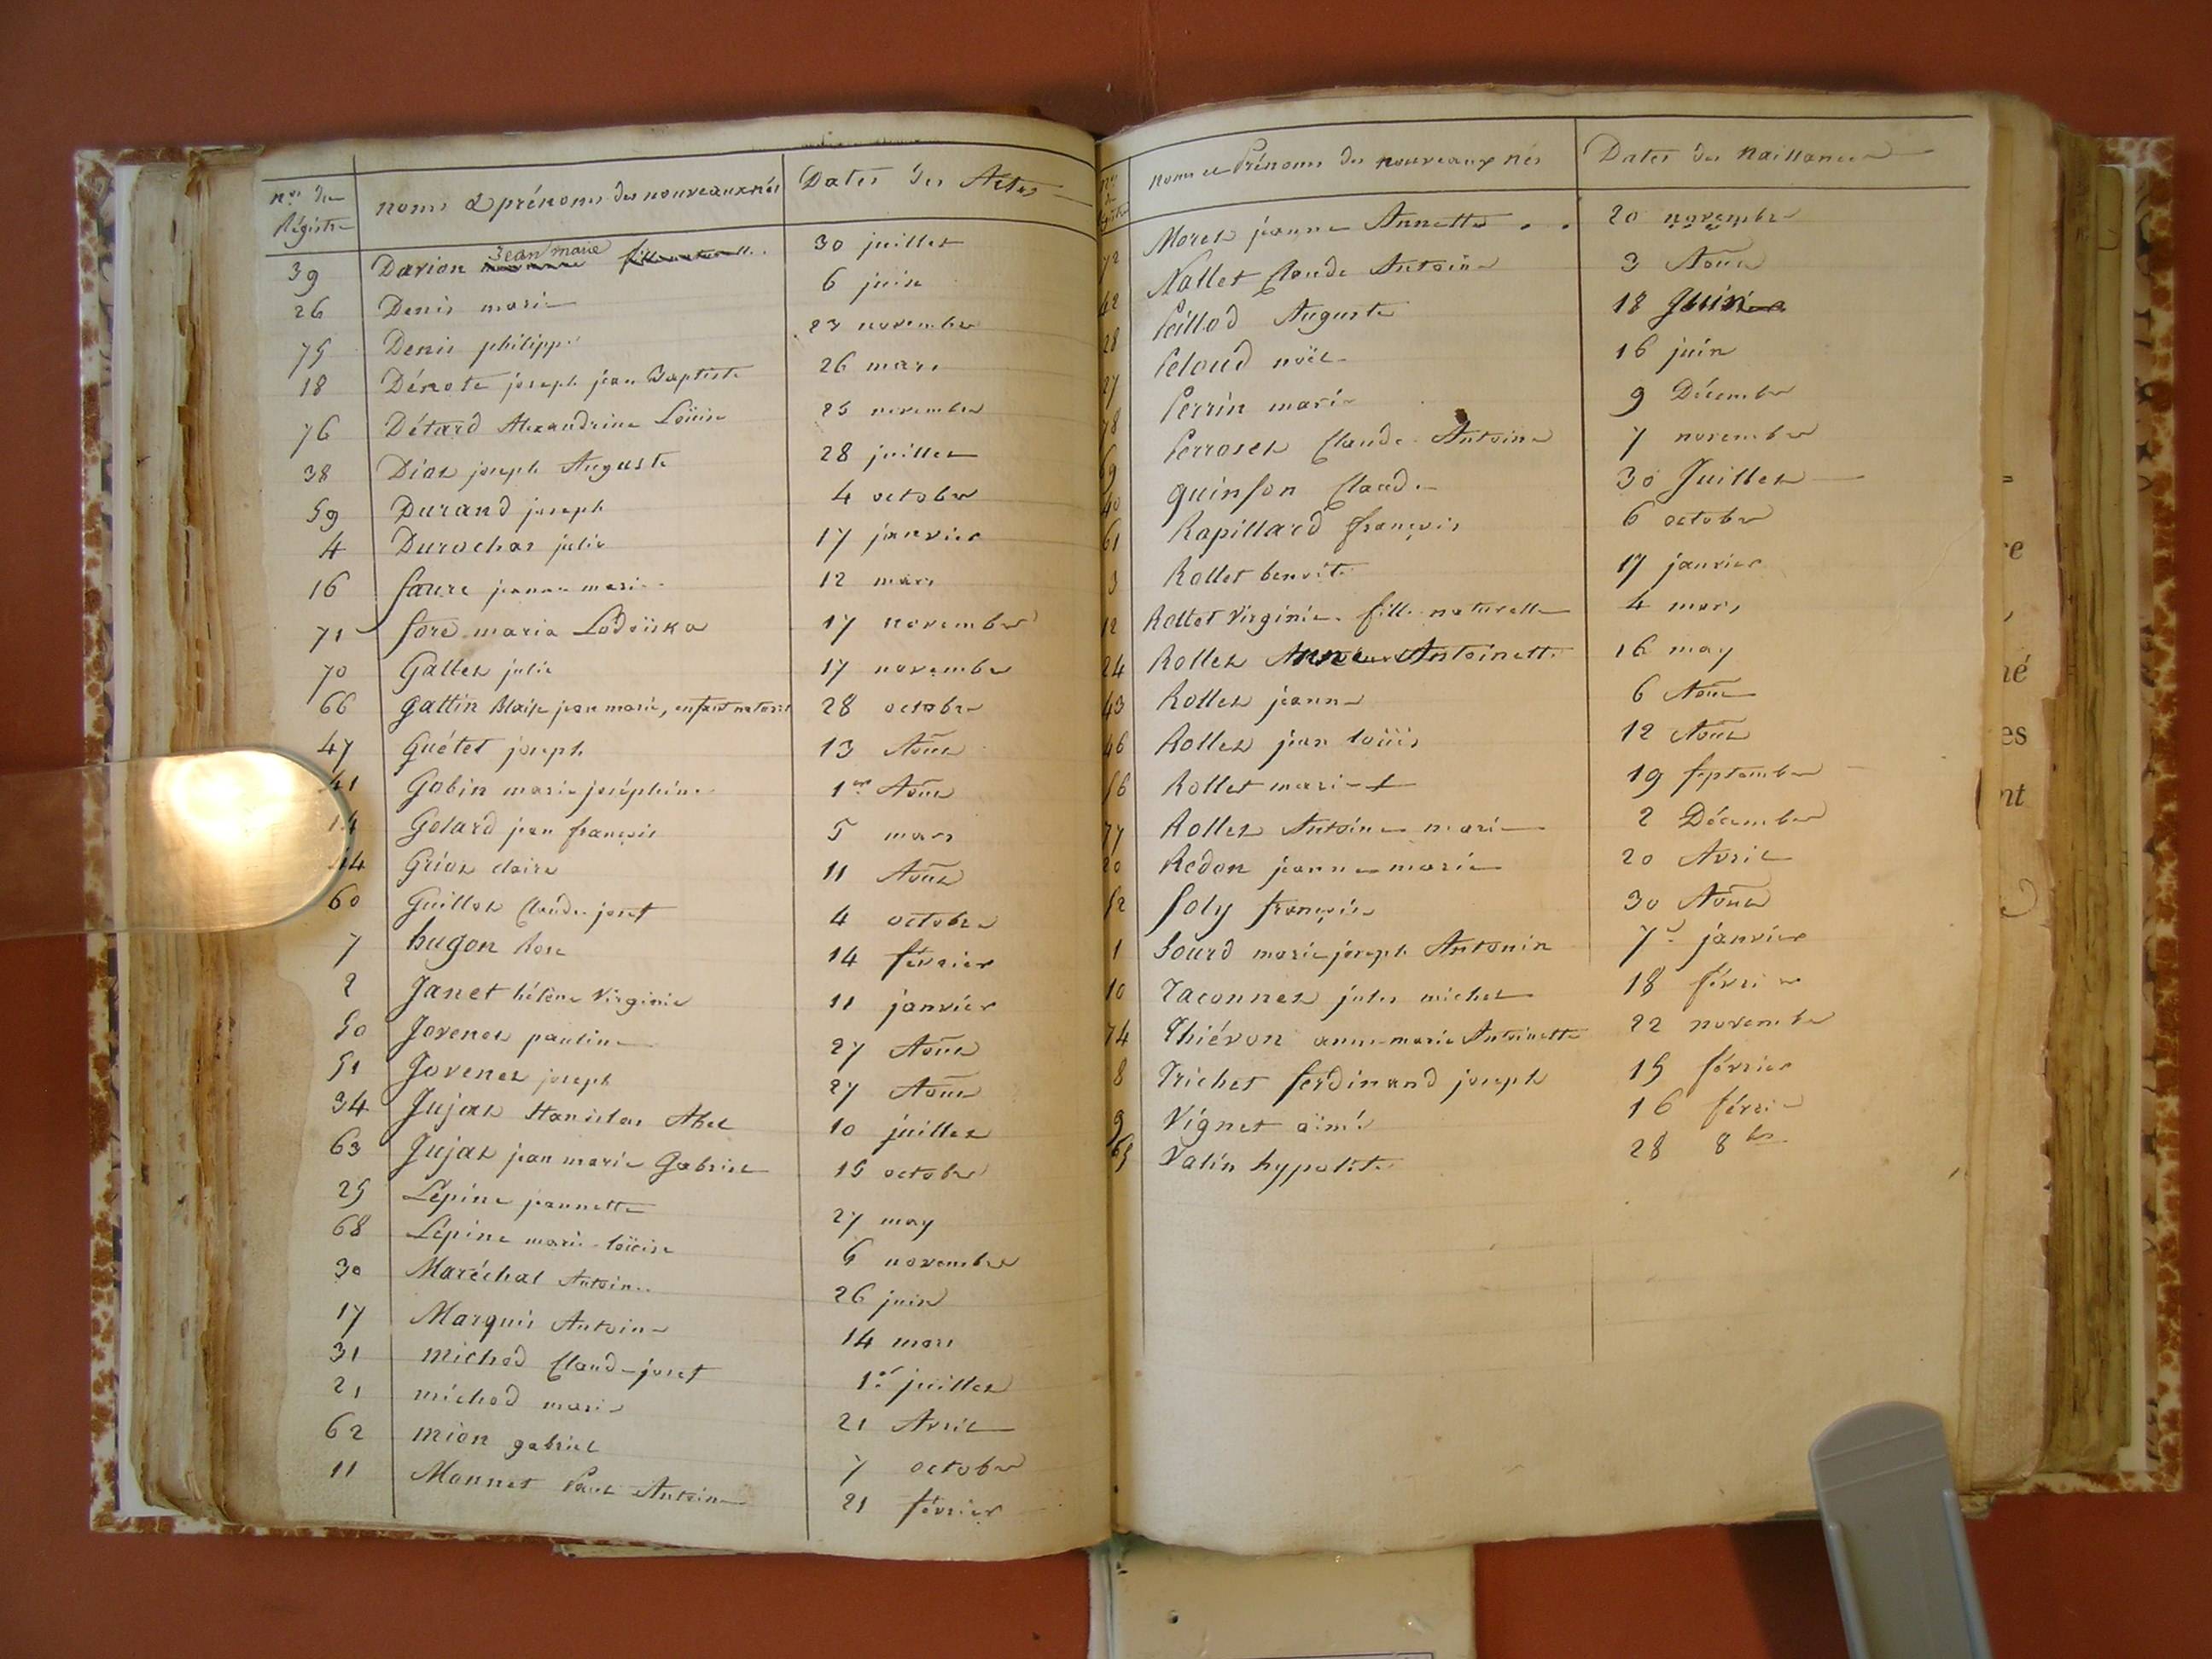 nos du Régistre noms & prénoms des nouveaux nés Dates des Actes
39 Darion Jean marie 30 juillet
26 Denis marie 6 juin
75 Denis philippe 23 novembre
18 Dénote joseph jean Baptiste 26 mars
76 Détard Alexandrine Loüise 25 novembre
38 Diot joseph Auguste 28 juillet
59 Durand joseph 4 octobre
4 Durochas julie 17 janvier
16 faure jeanne marie 12 mars
71 fore maria Lodoïska 17 novembre
70 Gallet julie 17 novembre
66 gattin Blaise jean marie, enfant naturel 28 octobre
47 Guétet joseph 13 Aout
41 Gobin marie joséphine 1er Aout
14 Golard jean françois 5 mars
44 Griot claire 11 Aout
60 Guillot Claude joset 4 octobre
7 hugon Rose 14 février
2 Janet hélène Virginie 11 janvier
50 Jovenet pauline 27 Aout
51 Jovenet joseph 27 Aout
34 Jujat Stanislas Abel 10 juillet
63 Jujat jean marie Gabriel 15 octobre
25 Lépine jeannette 27 may
68 Lépine marie loüise 6 novembre
30 Maréchal Antoine 26 juin
17 Marquis Antoine 14 mars
31 michod Claude joset 1er juillet
21 michod marie 21 Avril
62 mion gabriel 7 octobre
11 Monnet Paul Antoine 21 février
noms et Prénoms des nouveaux nés Dates des Naissances
72 Moret jeanne Annette 20 novembre
42 Nallet Claude Antoine 3 Aout
28 Peillod Auguste 18 Juin
27 Peloud noël 16 juin
78 Perrin marie 9 Décembre
69 Perroset Claude Antoine 7 novembre
40 quinson Claude 30 Juillet
61 Rapillard françois 6 octobre
3 Rollet benoite 17 janvier
12 Rollet Virginie fille naturelle 4 mars
24 Rollet Anne Antoinette 16 may
43 Rollet jeanne 6 Aout
46 Rollet jean loüis 12 Aout
56 Rollet marie 19 septembre
77 Rollet Antoine marie 2 Décembre
20 Redon jeanne marie 20 Avril
52 Soly françois 30 Aout
1 Sourd marie joseph Antonin 7 janvier
10 Taconnet jules michel 18 février
74 Thiévon anne-marie Antoinette 22 novembre
8 Trichet ferdinand joseph 15 février
9 Vignet aimé 16 février
65 Valin hypolite 28 8bre